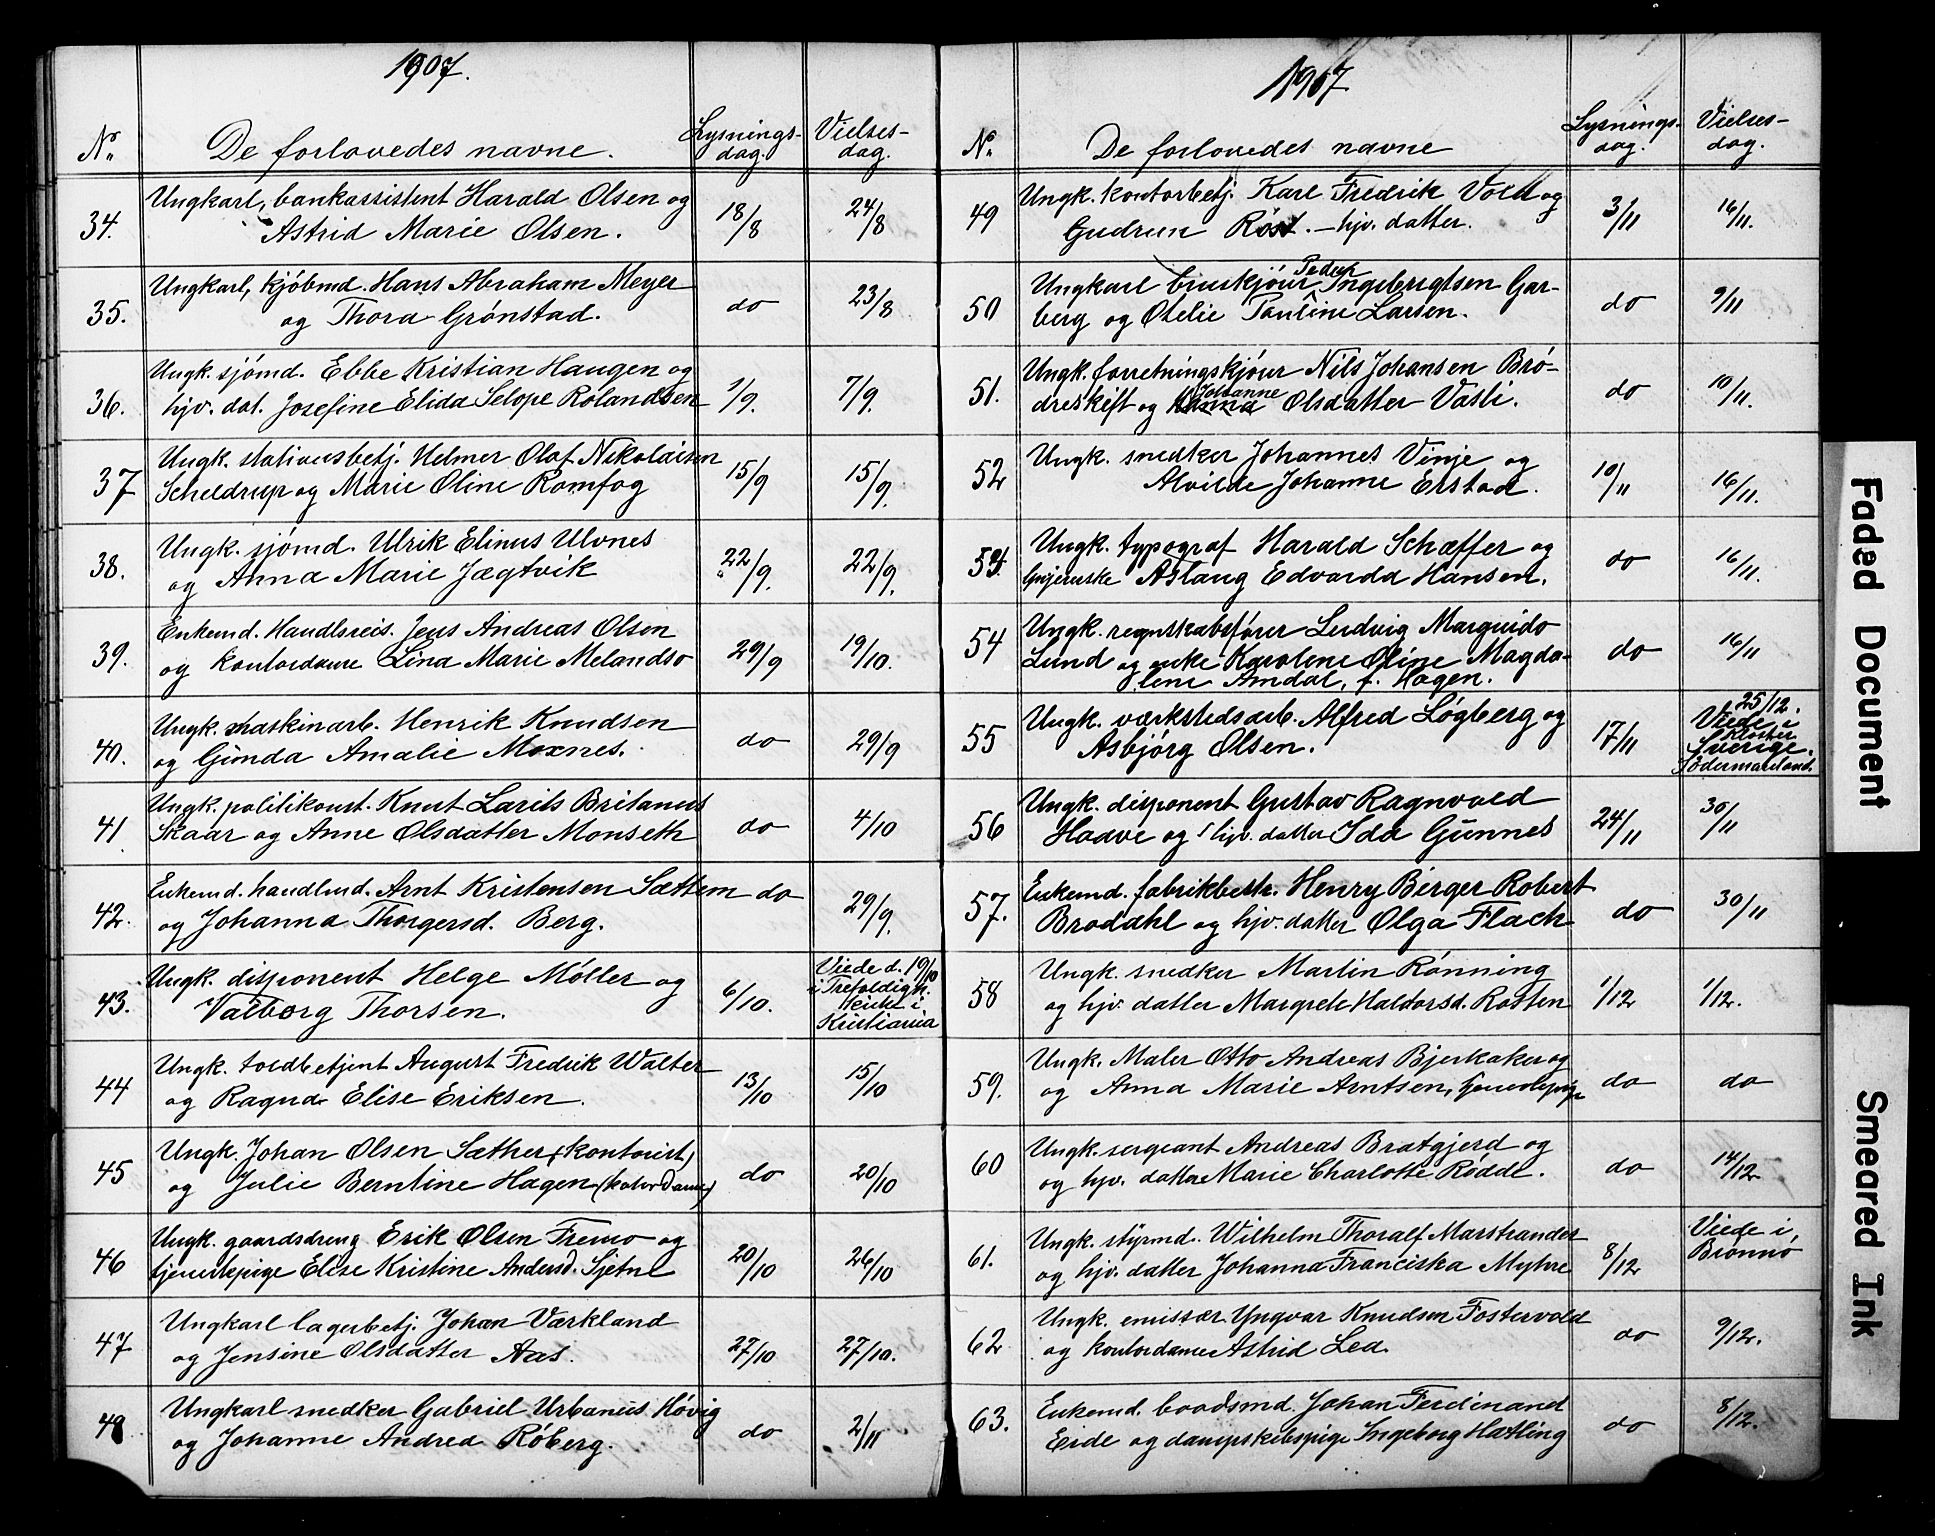 1907.
No. De forlovedes navne. Lysnings-dag. Vielses-dag.
34. Ungkarl, bankassistent Harald Olsen og 18/8 24/8
Astrid Marie Olsen.
35. Ungkarl, kjøbmd. Hans Abraham Meyer do 23/8
og Thora Grønstad.
36. Ungk. sjømd. Ebbe Kristian Haugen og 1/9. 7/9.
hjv. dat. Josefine Elida Selope Rolandsen
37 Ungk. stationsbetj. Helmer Olaf Nikolaisen 15/9 15/9.
Scheldrup og Marie Oline Romfog
38. Ungk. sjømd. Ulrik Elinus Ulvnes 22/9. 22/9.
og Anna Marie Jægtvik
39. Enkemd. Handlsreis. Jens Andreas Olsen 29/9 19/10.
og kontordame Lina Marie Melandsø
40. Ungk. maskinarb. Henrik Knudsen do 29/9
og Gunda Amalie Moxnes.
41. Ungk. politikonst. Knut Larits Britanus do 4/10
Skaar og Anne Olsdatter Monseth
42. Enkemd. handlmd. Arnt Kristensen Sættem do 29/9.
og Johanna Thorgersd. Berg.
43. Ungk. disponent Helge Møller og 6/10. Viede d. 19/10
Valborg Thorsen. i Trefoldigh.
kirke i
Kristiania
44 Ungk. toldbetjent August Fredrik Walter 13/10 15/10
og Ragna Elise Eriksen.
45 Ungk. Johan Olsen Sæther (kontorist) do 20/10
og Julie Berntine Hagen (kntordame)
46 Ungk. gaardsdreng Erik Olsen Fremo og 20/10 26/10
tjenestepige Elise Kristine Andersd. Sjetne
47 Ungkarl lagerbetj. Johan Værkland 27/10 27/10.
og Jensine Olsdatter Aas.
48 Ungkarl snedker Gabriel Urbanus Høvig do 2/11
og Johanne Andrea Røberg.
1907
No. De forlovedes navne Lysnings-dag. Vielses-dag.
49 Ungk. kontorbetj. Karl Fredrik Vold og 3/11 16/11.
Gudrun Røst. – hjv. datter.
50 Ungkarl bruskjører Peder Ingebrigtsen Gar- do 9/11
berg og Otelie Pauline Larsen.
51. Ungk. forretningskjører Nils Johansen Brø- do 10/11.
dreskift og Johanne Olsdatter Vasli.
52 Ungk. snedker Johannes Vinje og 10/11 16/11.
Alvilde Johanne Erstad.
53. Ungk. typograf Harald Schæffer og do 16/11.
Aslaug Edvarda Hansen.
54 Ungk. regnskabsfører Ludvig Marguido do 16/11
Lund og enke Karolene Oline Magda-
lene Amdal, f. Hagen.
55 Ungk. værkstedsarb. Alfred Løgberg og 17/11 25/12.
Asbjørg Olsen. Viede i
Kloster
Sverige.
Södermanland.
56 Ungk. disponent Gustav Ragnvald 24/11 30/11
Haave og hjv. datter Ida Gunnes
57. Enkemd. fabrikbestr. Henry Birger Robert do 30/11
Brodahl og hjv. datter Olga Flach
58 Ungk. snedker Martin Rønning 1/12 1/12.
og hjv. datter Margrete Haldorsd. Rotten
59. Ungk. Maler Otto Andreas Bjerkaker og do do
og Anna Marie Arntsen, tjenestepige
60 Ungk. sergeant Andreas Bratgjerd og do 14/12
og hjv. datter Marie Charlotte Rødde.
61. Ungk. styrmd. Wilhelm Thoralf Marstrander 8/12 Viede i
og hjv. datter Johanna Franciska Myhre Brønnø
62 Ungk. emissær Yngvar Knudsen Fostervold do 9/12.
og kontordame Astrid Lea.
63. Enkemd. baadsmd. Johan Ferdinand do 8/12.
Eide og dampskibspige Ingeborg Hatling
Faded Document
Smeared Ink